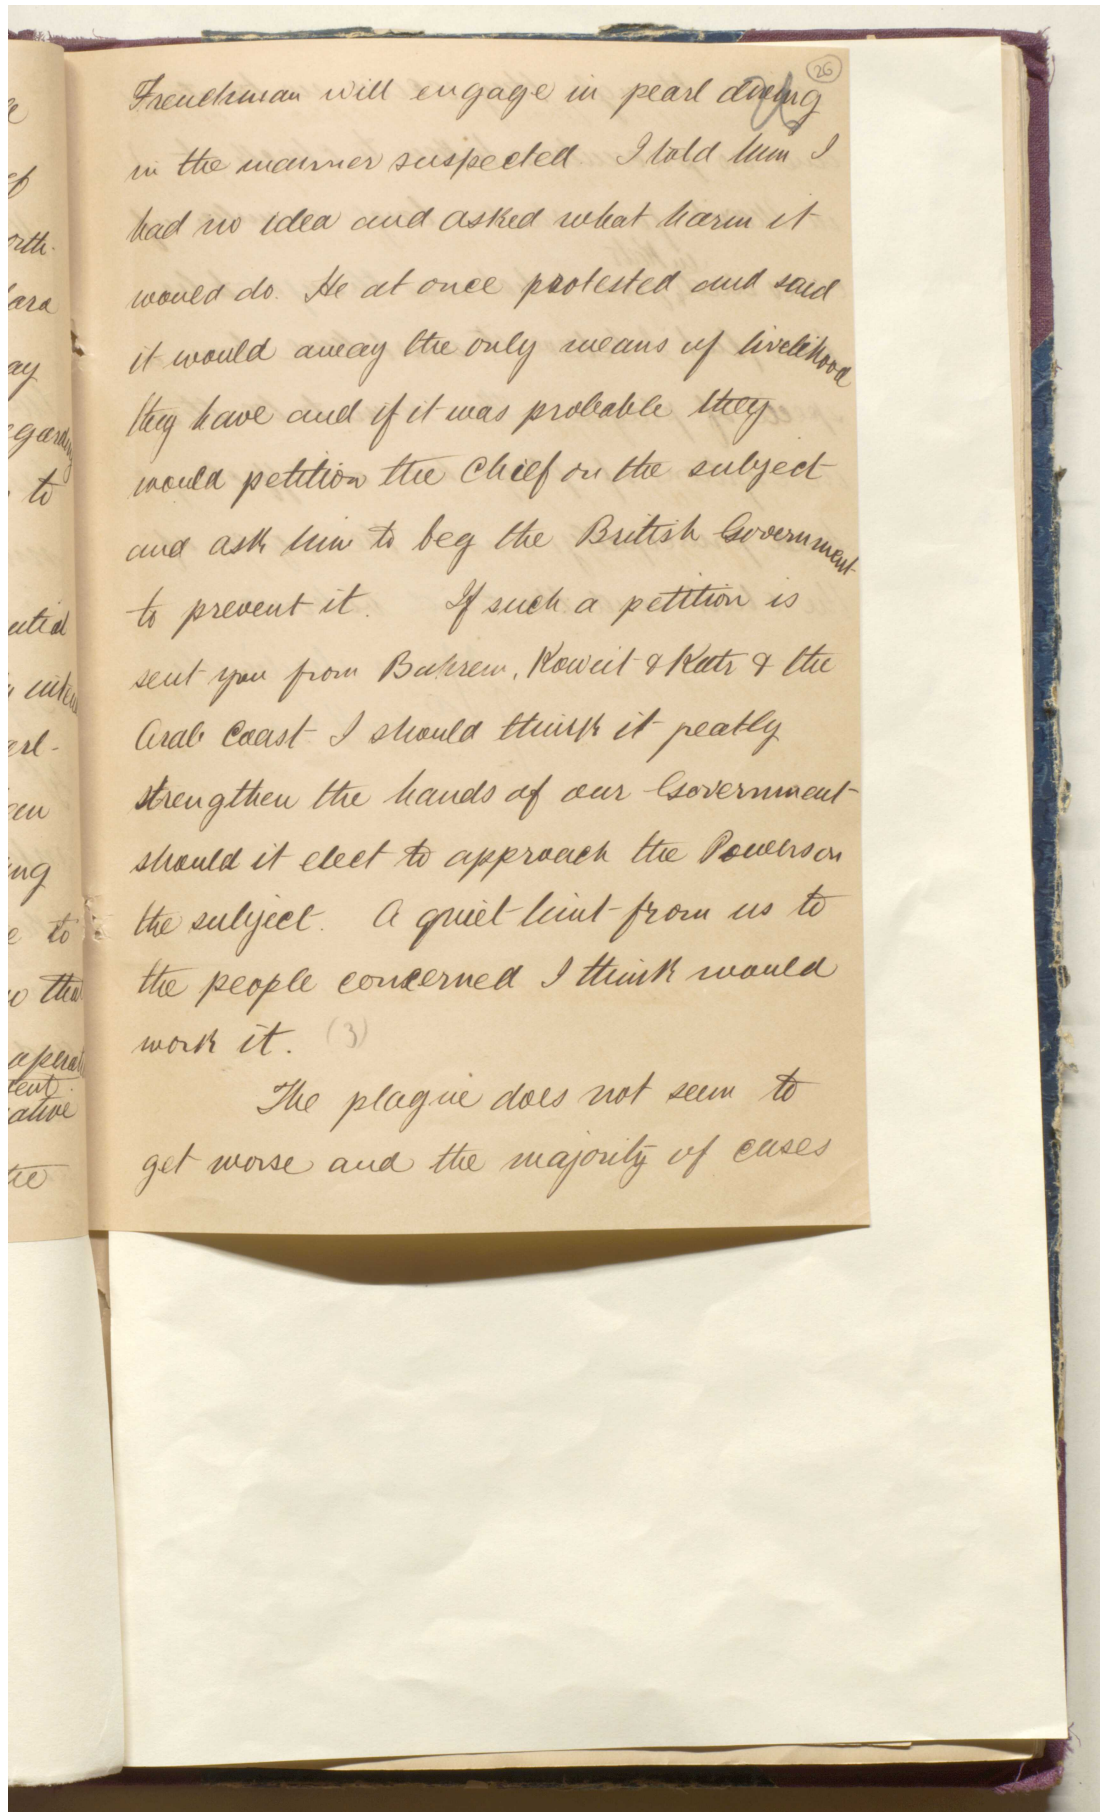 26
Frenchman will engage in pearl diving
in the manner suspected. I told him I
had no idea and asked what harm it
would do. He at once protested and said
it would away the only means of livelihood
they have and if it was probable they
would petition the Chief on the subject
and ask him to beg the British Government
to prevent it. If such a petition is
sent you from Bahrein, Koweit & Katr & the
Arab Coast I should think it greatly
strengthen the hands of our Government
should it elect to approach the Powers on
the subject. A quiet hint from us to
the people concerned I think would
work it. (3)
The plague does not seem to
get worse and the majority of cases
orth.
ara
ay
to
ng
e to